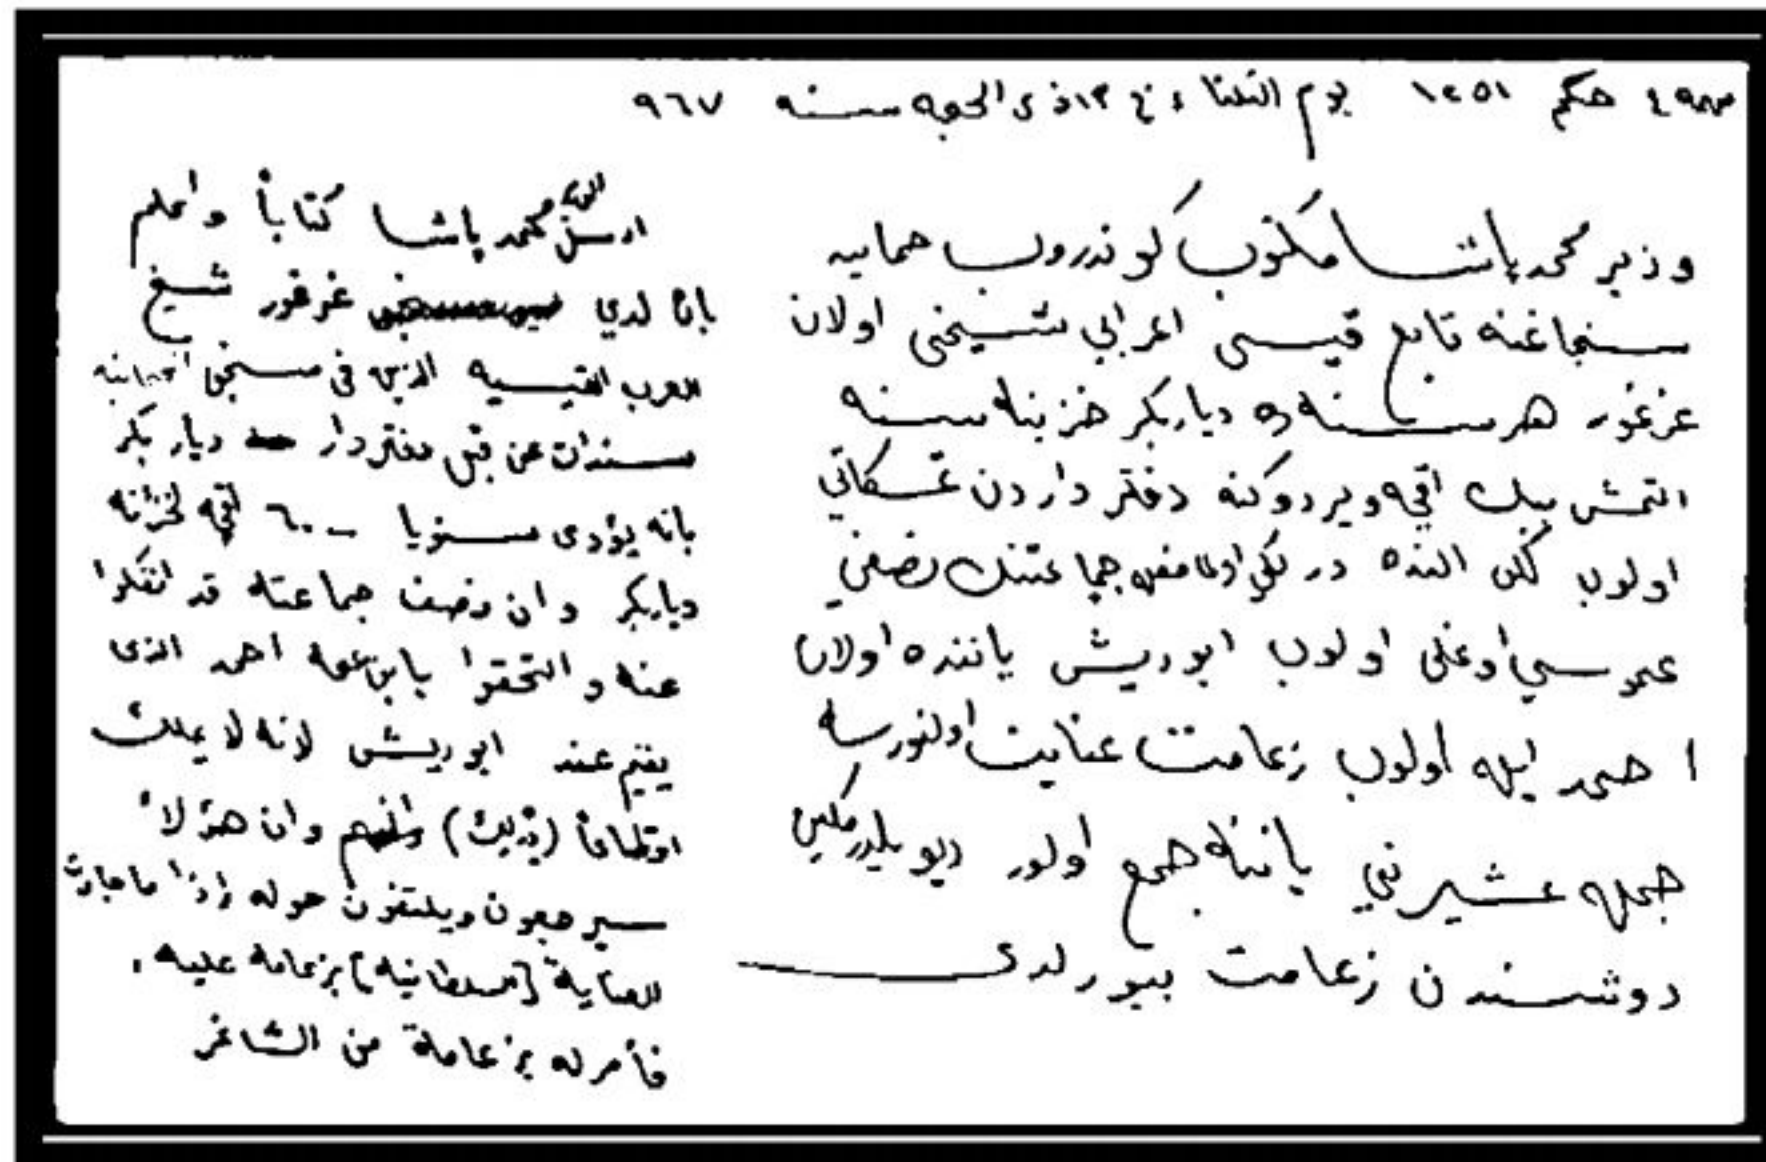 حكم ١٢٥١ يوم الثلثاء في ١٣ ذى الحجه سنه ٩٦٧
وزير محمد پاشا مكتوب كوندروب حمايه
سنجاغنه تابع قيسى اعرابي شيخى اولان
غرغور هر سنه ده دياربكر خزينه سنه
التمش بيك اقچه ويردوكنه دفتر داردن تمسكاتي
اولوب النده در جماعتنك نصفي
عموسي اوغلى اولوب ابوريش ياننده اولان
احمد ايله اولوب زعامت عنايت اولنورسه
جمله عشيرتي ياننه جمع اولور ديو بيلدرمكين
دوشندن زعامت بيورلدى
ارسل الوزير محمد پاشا كتاباً واعلم
بان لدي غرغور شيخ
العرب القيسيه الذين في سنجق
سندات من قبل دفتردار ديار بكر
بانه يؤدى سنويا ٦٠٠٠ اقچه لخزانه
دياربكر وان نصف جماعته قد انفكوا
عنه والتحقوا بابن عمه احمد الذى
يقيم عند ابو ريش لانه لا يملك
اقطاعاً وان هؤلاء
سيرجعون ويلتفون حوله اذا ما جادت
العناية [السلطانية] بزعامة عليه .
فأمر له بزعامة من الشاغر